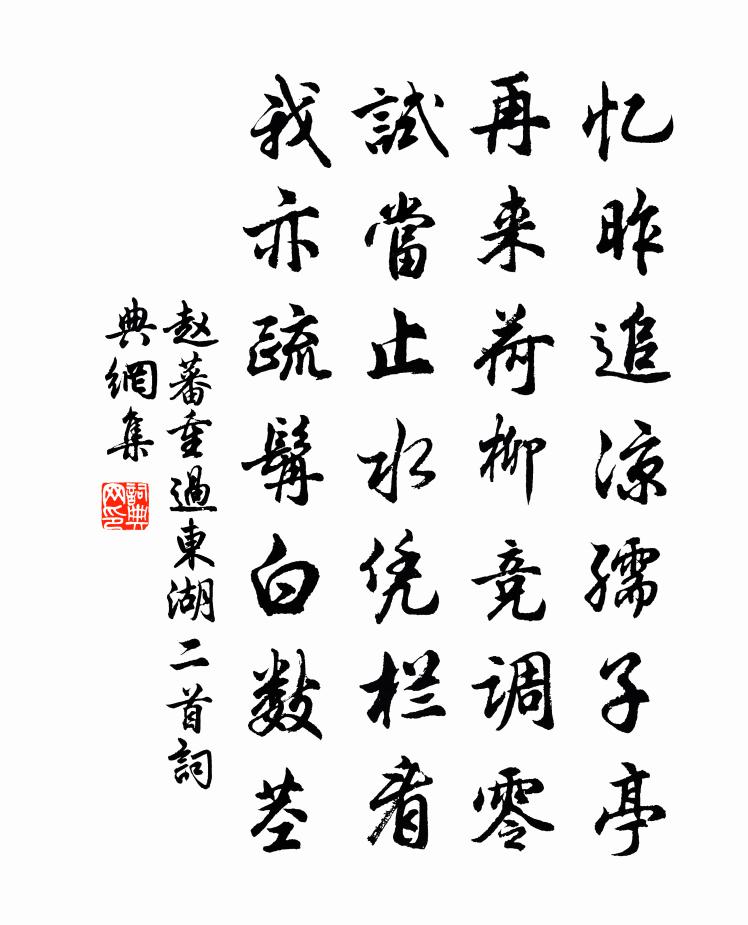 忆昨追凉孺子亭
再来荷柳竞调零
試當止水凭栏看
我亦疏髯白数茎
赵蕃重過東湖二首詞
典網集
詞典
网印